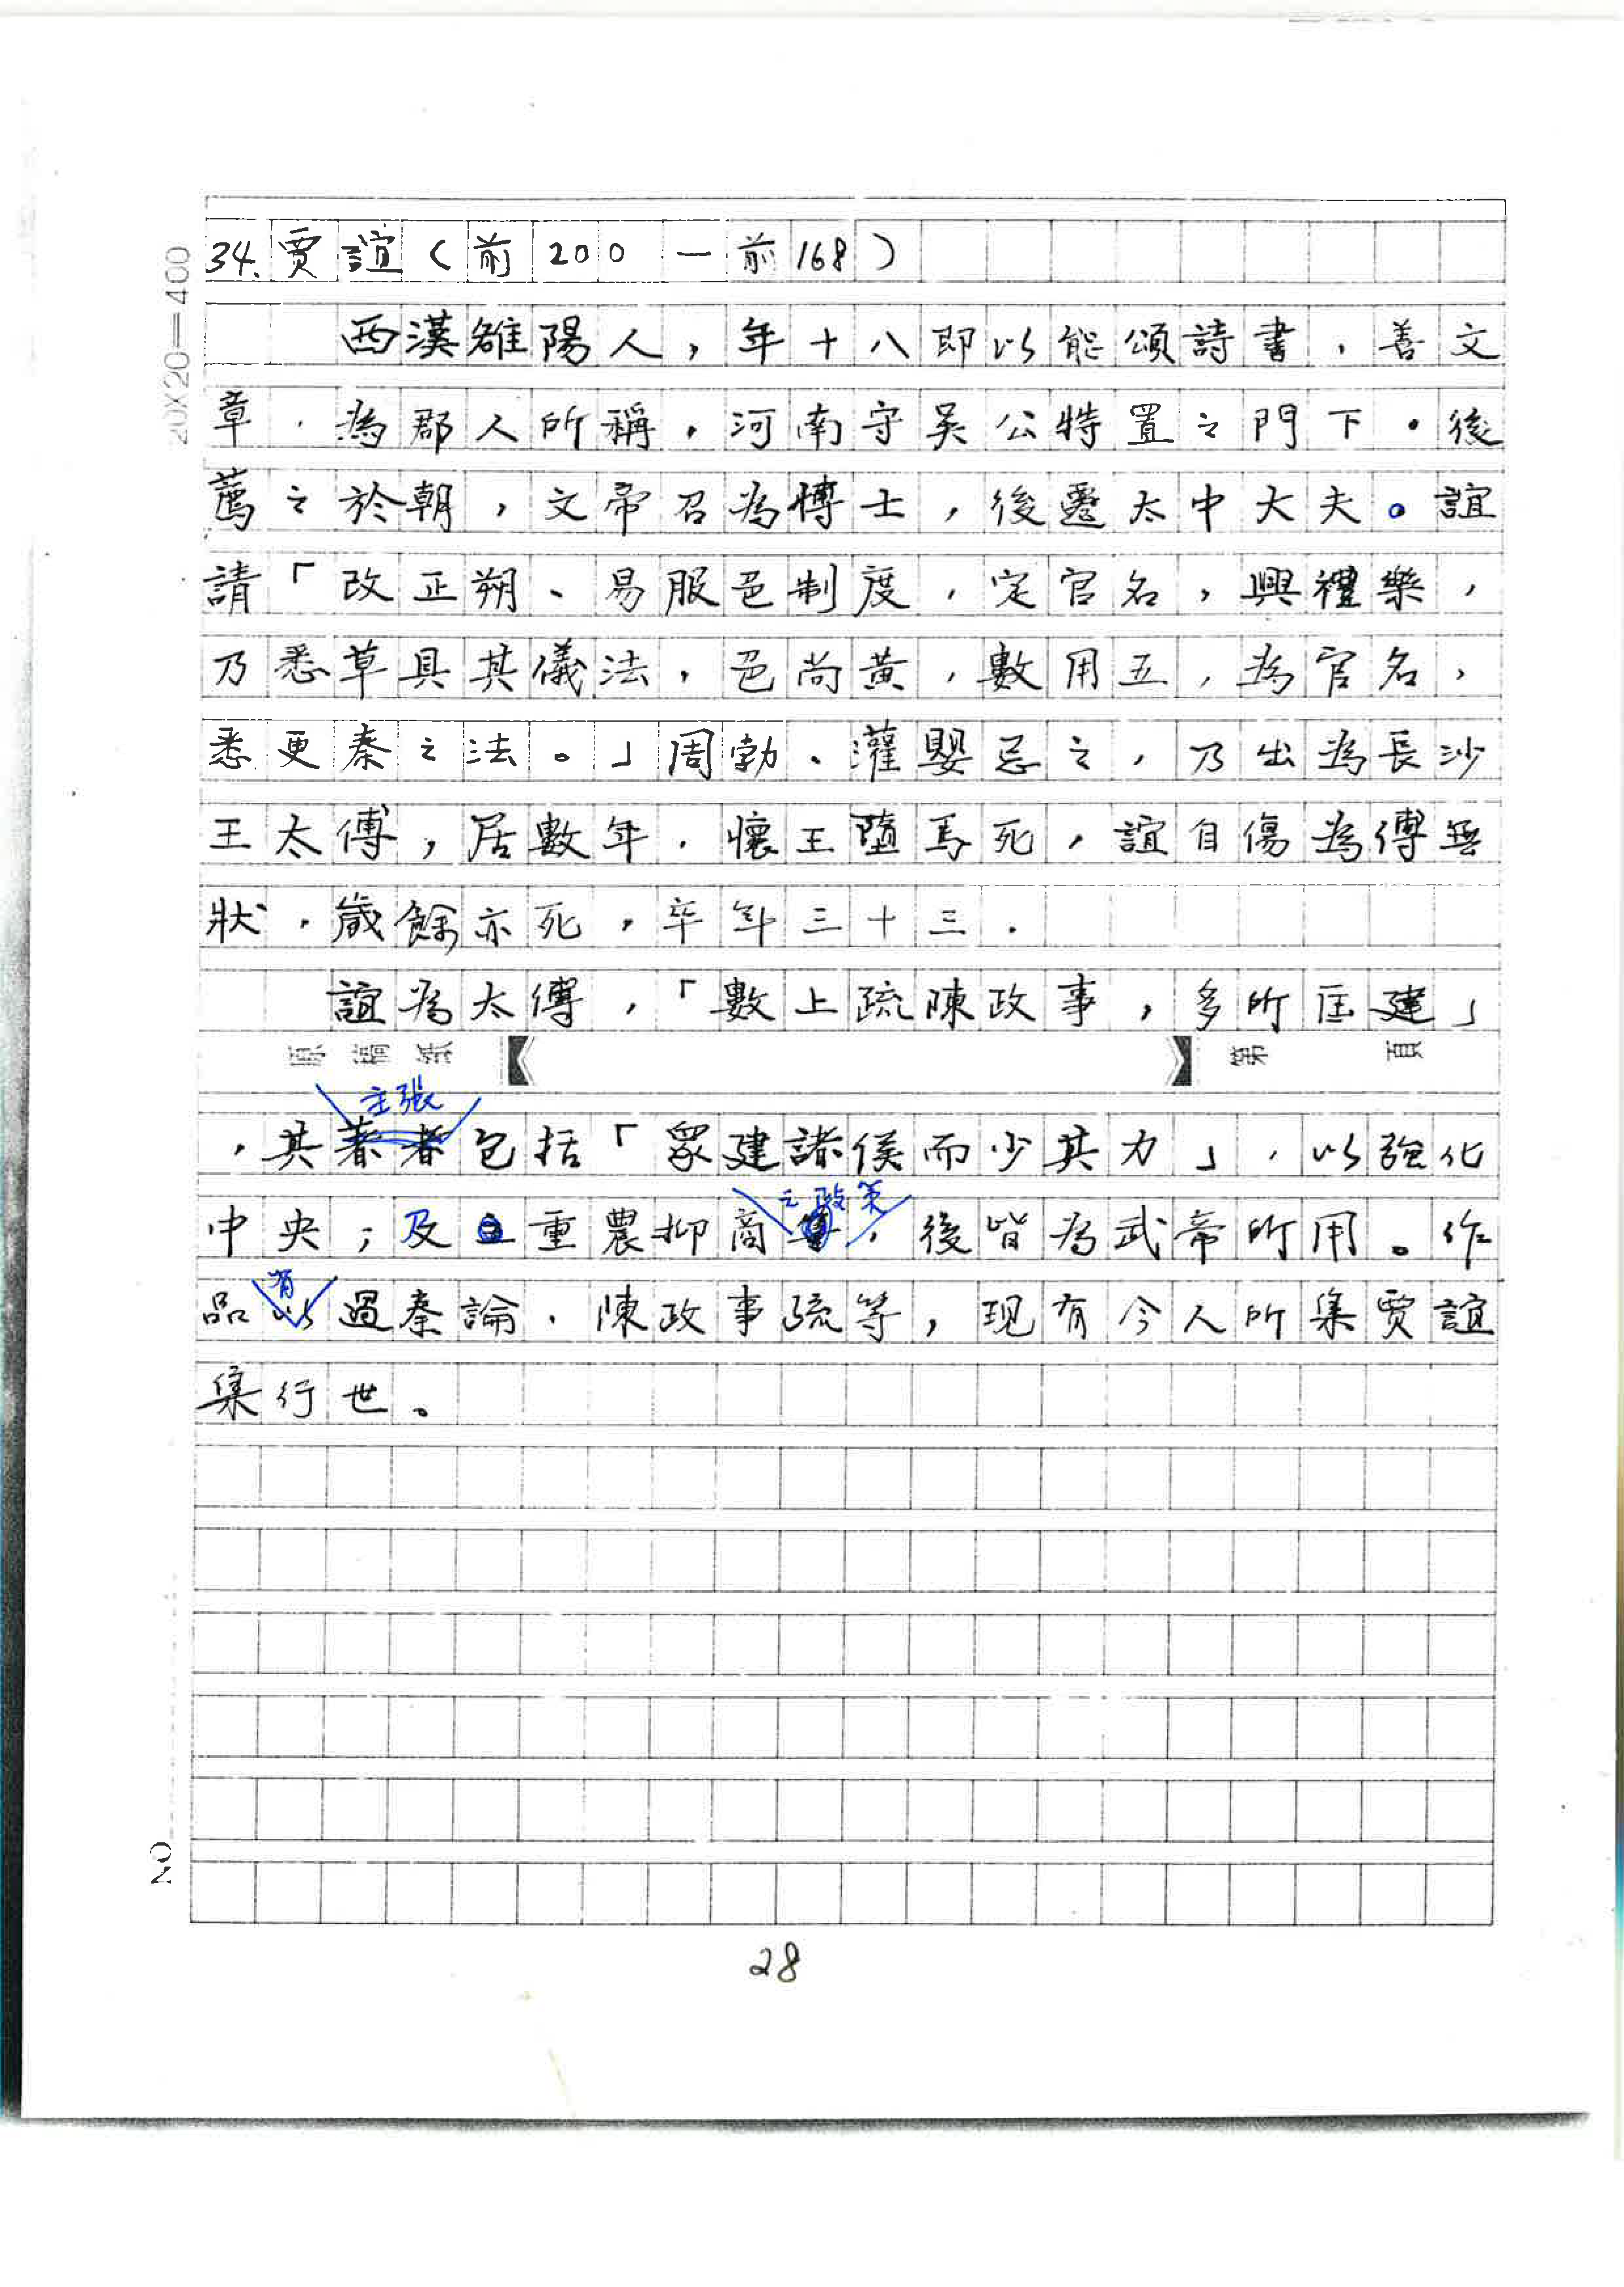 34.賈誼(前200—前168)
西漢雒陽人,年十八即以能頌詩書,善文
章,為郡人所稱。河南守吳公特置之門下。後
薦之於朝,文帝召為博士,後遷太中大夫。誼
請「改正朔、易服色制度,定官名,興禮樂,
乃悉草具其儀法,色尚黃,數用五,為官名,
悉更秦之法。」周勃、灌嬰忌之,乃出為長沙
王太傅,居數年,懷王墮馬死,誼自傷為傅無
狀,歲餘亦死,卒年三十三.
誼為太傅,「數上疏陳政事,多所匡建」
原稿紙
第 頁
主張
,其著者包括「眾建諸侯而少其力」,以強化
之政策
中央;及重農抑商,後皆為武帝所用。作
有
品以過秦論,陳政事疏等,現有今人所集賈誼
集行世。
20X20=400
NO
28